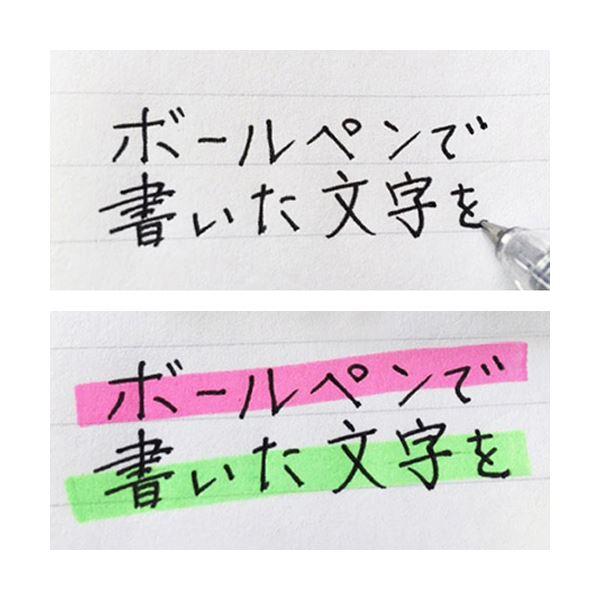 ボールペンで
書いた文字を
ボールペンで
書いた文字を